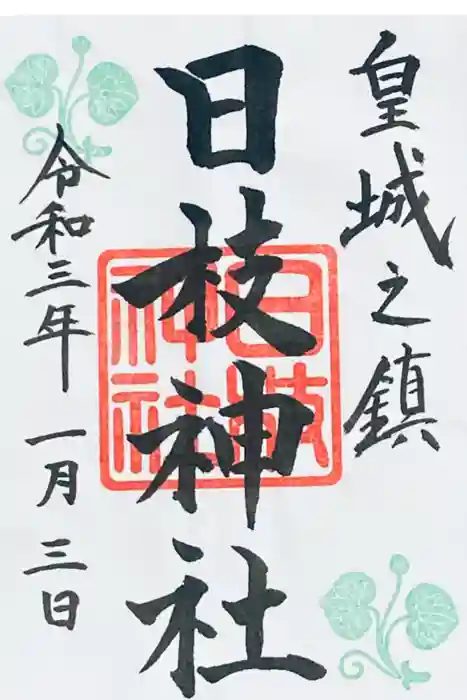 皇城之鎮
日枝神社
令和三年一月三日
日枝
神社